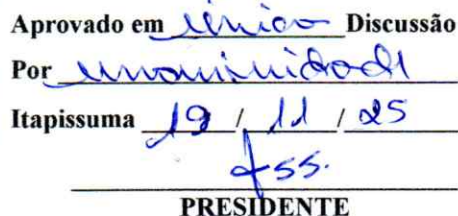 Aprovado em única Discussão
Por unanimidade
Itapissuma 19 / 11 / 25
PRESIDENTE